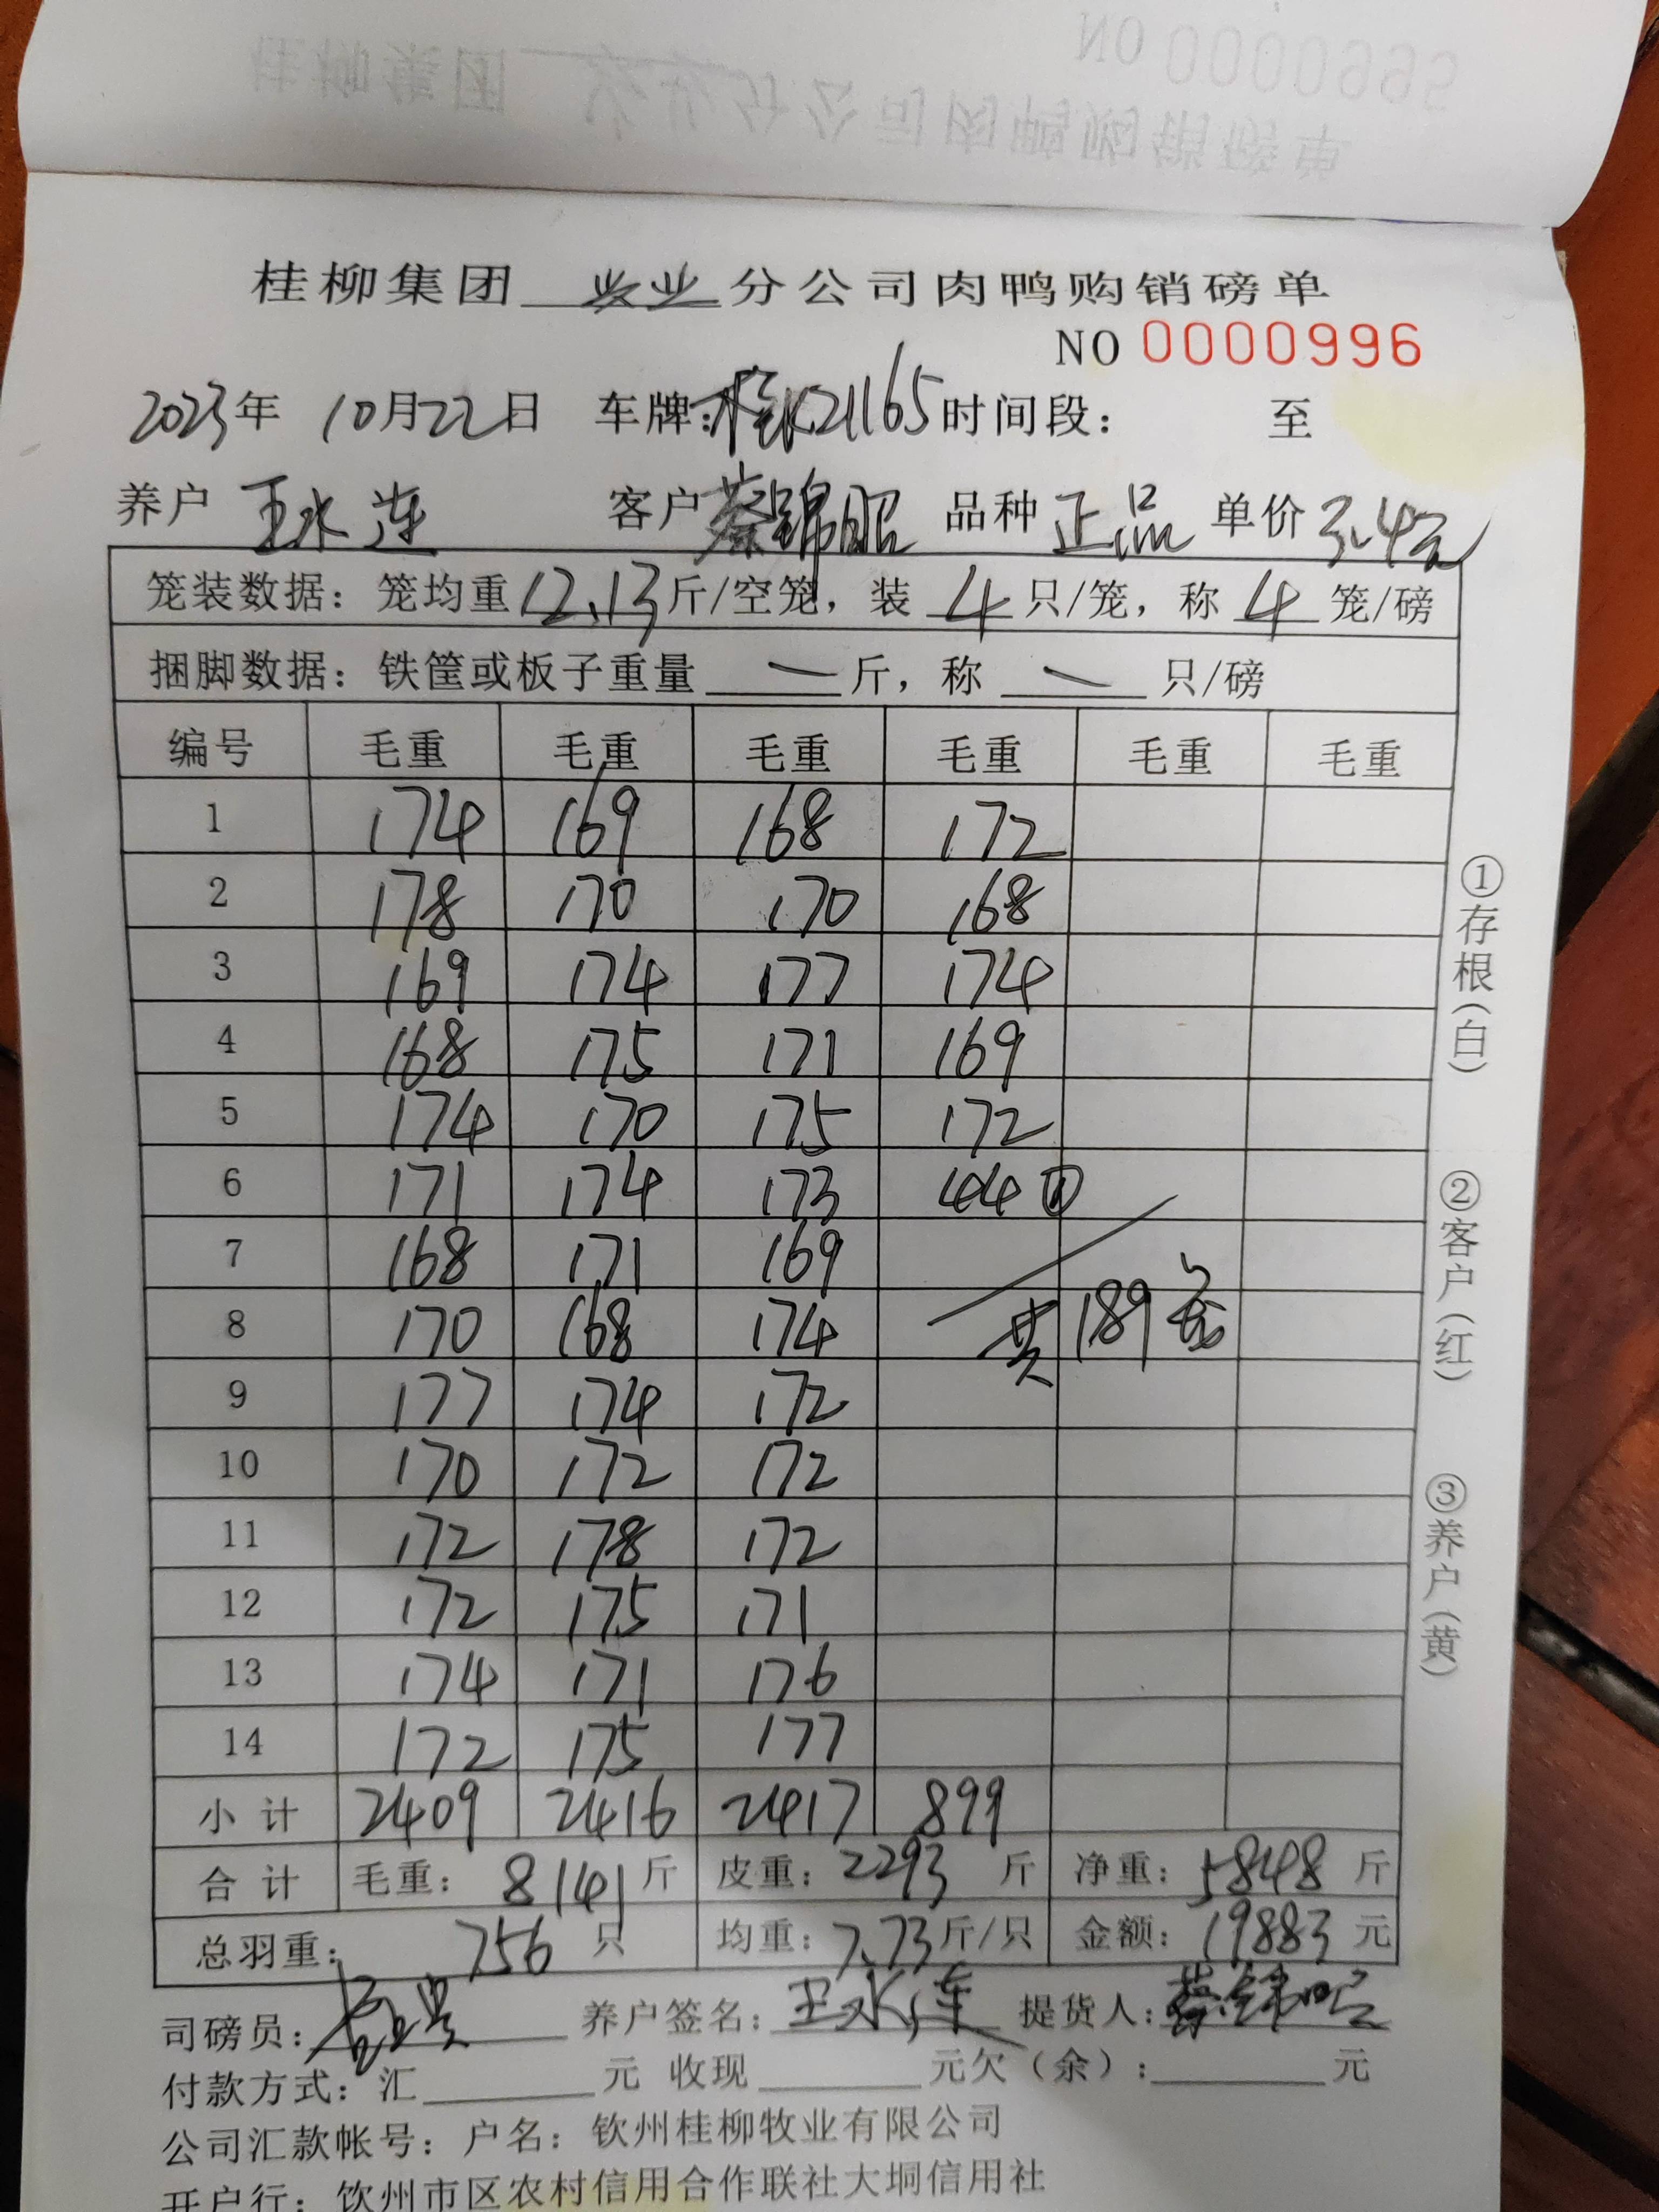 桂柳集团 牧业 分公司肉鸭购销磅单
NO 0000996
2023年 10月22日 车牌:桂K21165 时间段: 至
养户 王水连 客户 蔡锦昭 品种 正品 单价 3.4元
笼装数据: 笼均重 12.13 斤/空笼, 装 4 只/笼, 称 4 笼/磅
捆脚数据: 铁筐或板子重量 — 斤, 称 — 只/磅
编号 毛重 毛重 毛重 毛重 毛重 毛重
1 174 169 168 172
2 178 170 170 168
3 169 174 177 174
4 168 175 171 169
5 174 170 175 172
6 171 174 173 44 ①
7 168 171 169
8 170 168 174 共 189 笼
9 177 174 172
10 170 172 172
11 172 178 172
12 172 175 171
13 174 171 176
14 172 175 177
小计 2409 2416 2417 899
合计 毛重: 8141 斤 皮重: 2293 斤 净重: 5848 斤
总羽重: 756 只 均重: 7.73 斤/只 金额: 19883 元
司磅员: 养户签名: 王水连 提货人: 蔡锦昭
付款方式: 汇 元 收现 元欠(余): 元
公司汇款帐号: 户名: 钦州桂柳牧业有限公司
开户行: 钦州市区农村信用合作联社大垌信用社
①存根(白)
②客户(红)
③养户(黄)